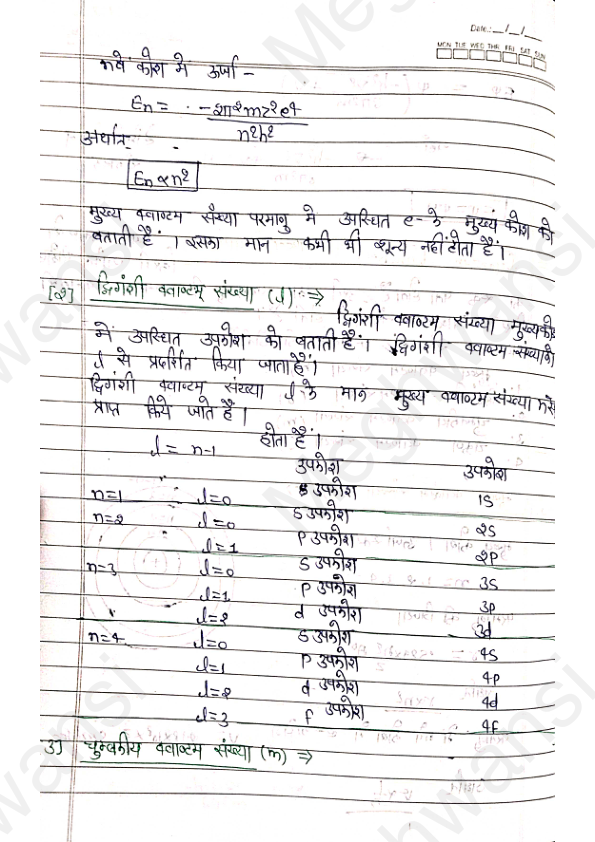 Date.:__/__/__
MON TUE WED THR FRI SAT SUN
nवें कोश में ऊर्जा -
En = - 2π²mz²e⁴
n²h²
अर्थात्
En ∝ n²
मुख्य क्वाण्टम संख्या परमाणु मे अस्थित e- के मुख्य कोश को
बताती हैं । इसका मान कभी भी शून्य नहीं होता हैं।
[2] द्विगंशी क्वाण्टम् संख्या (l) ⇒
द्विगंशी क्वाण्टम संख्या मुख्यको
में अस्थित उपकोश को बताती हैं। द्विगंशी क्वाण्टम संख्याको
l से प्रदर्शित किया जाता हैं।
द्विगंशी क्वाण्टम् संख्या l के मान मुख्य क्वाण्टम संख्या n से
प्राप्त किये जाते हैं ।
l = n-1 होता हैं।
उपकोश उपकोश
n=1 l=0 s उपकोश 1s
n=2 l=0 s उपकोश 2s
l=1 p उपकोश 2p
n=3 l=0 s उपकोश 3s
l=1 p उपकोश 3p
l=2 d उपकोश 3d
n=4 l=0 s उपकोश 4s
l=1 p उपकोश 4p
l=2 d उपकोश 4d
l=3 f उपकोश 4f
3] चुम्बकीय क्वाण्टम संख्या (m) ⇒
Meghwansi